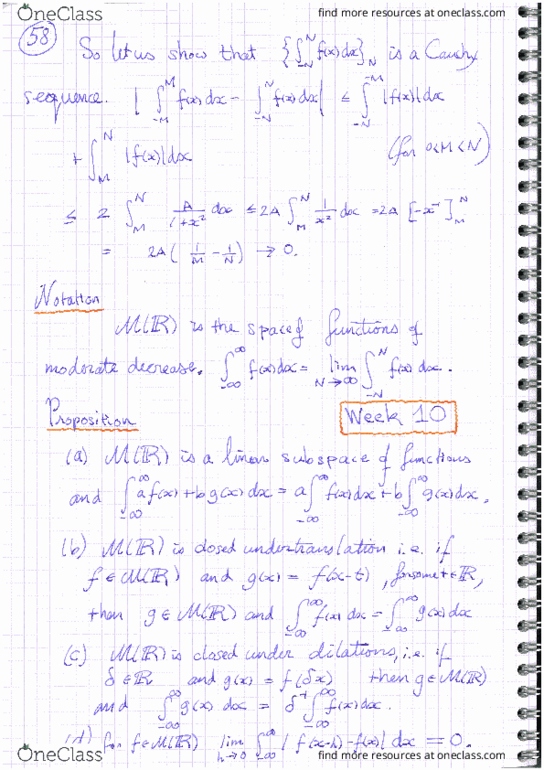 OneClass find more resources at oneclass.com
58 So let us show that {∫_{-N}^{N} f(x)dx}_N is a Cauchy
sequence. | ∫_{-M}^{M} f(x)dx - ∫_{-N}^{N} f(x)dx | ≤ ∫_{-N}^{-M} |f(x)|dx
+ ∫_M^N |f(x)|dx (for 0<M<N)
≤ 2 ∫_M^N A/(1+x²) dx ≤ 2A ∫_M^N 1/x² dx = 2A [-x⁻¹]_M^N
= 2A ( 1/M - 1/N ) → 0.
Notation
M(ℝ) is the space of functions of
moderate decrease. ∫_{-∞}^{∞} f(x)dx = lim_{N→∞} ∫_{-N}^{N} f(x)dx.
Proposition Week 10
(a) M(ℝ) is a linear subspace of functions
and ∫_{-∞}^{∞} af(x)+bg(x)dx = a∫_{-∞}^{∞} f(x)dx + b∫_{-∞}^{∞} g(x)dx,
(b) M(ℝ) is closed under translation i.e. if
f∈M(ℝ) and g(x) = f(x-t), for some t∈ℝ,
then g∈M(ℝ) and ∫_{-∞}^{∞} f(x)dx = ∫_{-∞}^{∞} g(x)dx
(c) M(ℝ) is closed under dilations, i.e. if
δ∈ℝ and g(x) = f(δx) then g∈M(ℝ)
and ∫_{-∞}^{∞} g(x) dx = δ⁻¹∫_{-∞}^{∞} f(x)dx.
(d) for f∈M(ℝ) lim_{h→0} ∫_{-∞}^{∞} | f(x-h)-f(x)| dx = 0.
OneClass find more resources at oneclass.com